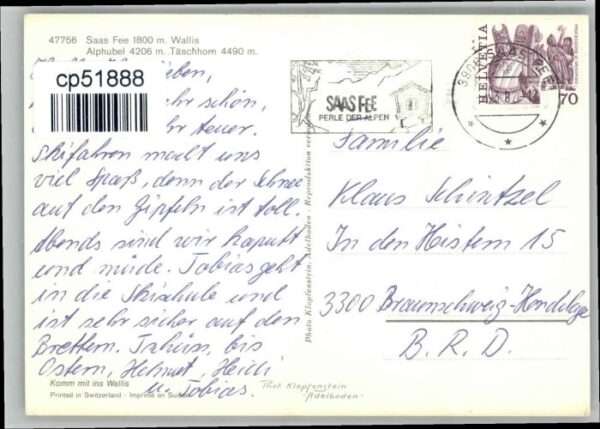 47756 Saas Fee 1800 m. Wallis
Alphubel 4206 m. Täschhorn 4490 m.
cp51888
schön,
teuer.
Skifahren macht uns
viel Spaß, denn der Schnee
auf den Gipfeln ist toll.
Abends sind wir kaputt
und müde. Tobias geht
in die Skischule und
ist sehr sicher auf den
Brettern. Tschüss, bis
Ostern, Helmut, Heidi
u. Tobias.
Komm mit ins Wallis
Printed in Switzerland - Imprimé en Suisse
Photo Klopfenstein, Adelboden - Reproduktion
SAAS FEE
PERLE DER ALPEN
HELVETIA
70
Familie
Klaus Schintzel
In den Heistern 15
3300 Braunschweig-
B. R. D.
Phot Klopfenstein
"Adelboden"